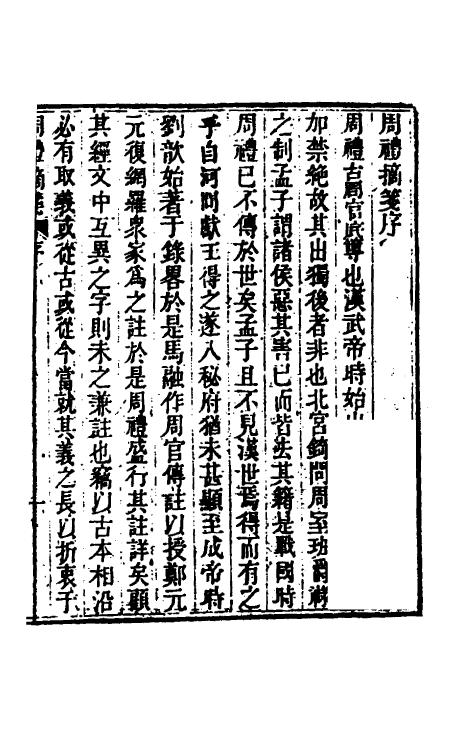 周禮摘箋序
周禮古周官底簿也漢武帝時始出
加禁絶故其出獨後者非也北宮錡問周室班爵祿
之制孟子謂諸侯惡其害已而皆去其籍是戰國時
周禮已不傳於世矣孟子且不見漢世焉得而有之
乎自河間獻王得之遂入秘府猶未甚顯至成帝時
劉歆始著于錄畧於是馬融作周官傳註以授鄭元
元復網羅衆家爲之註於是周禮盛行其註詳矣顧
其經文中互異之字則未之兼註也竊以古本相沿
必有取義或從古或從今當就其義之長以折衷于
周禮摘箋 序 一